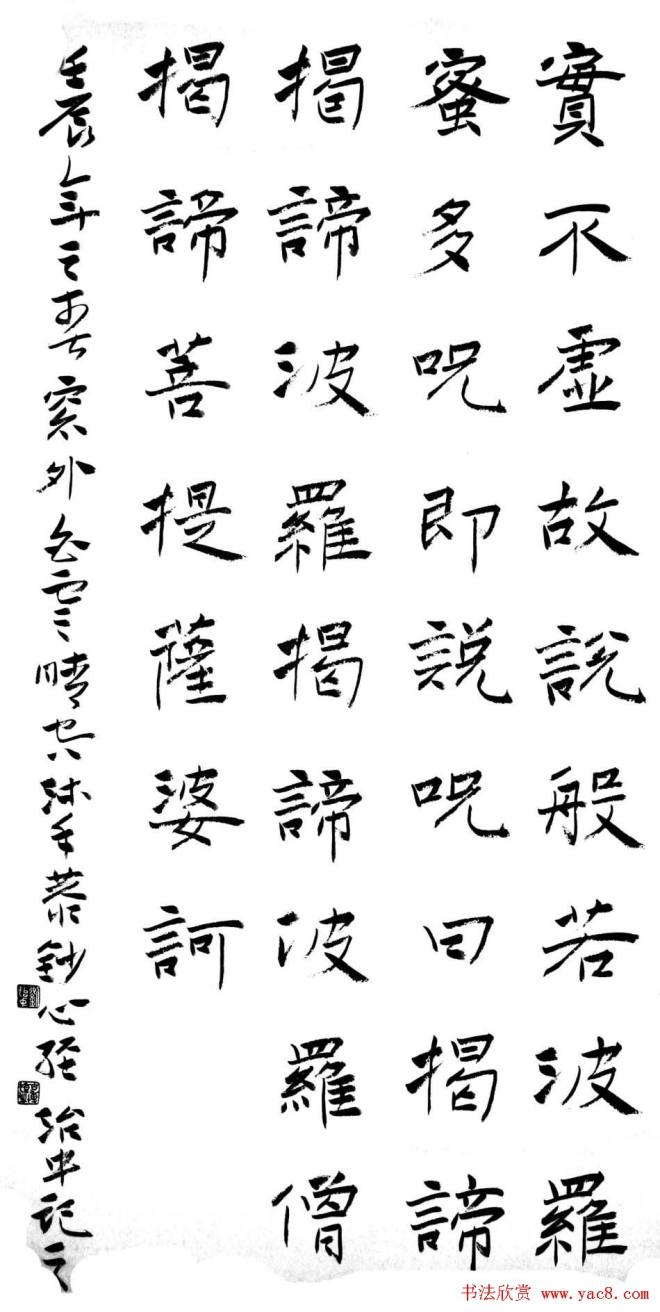 實不虛故說般若波羅
蜜多咒即説咒曰揭諦
揭諦波羅揭諦波羅僧
揭諦菩提薩婆訶
壬辰年之春窗外白雲晴空沐手恭鈔心經治中記之
书法欣赏 www.yac8.com